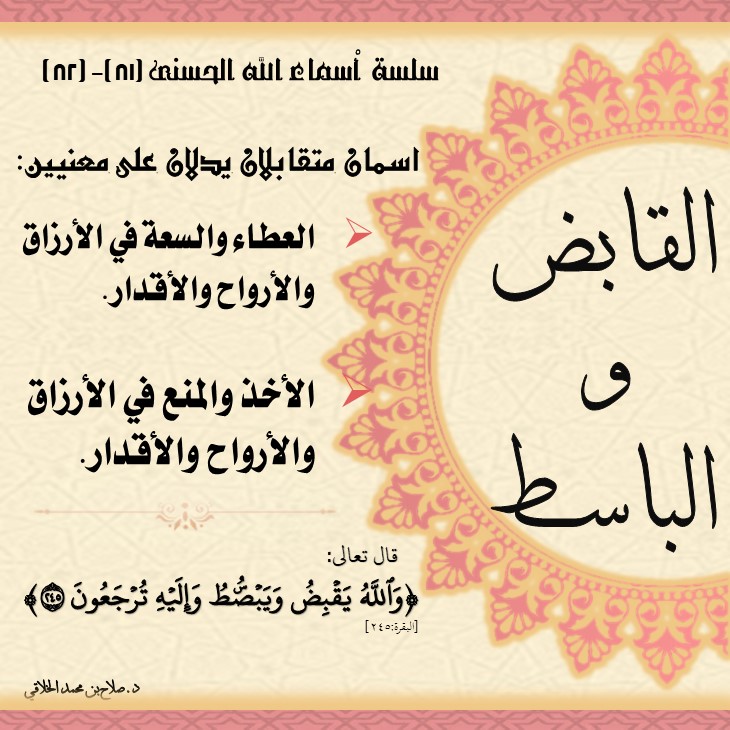 سلسة أسماء الله الحسنى (٨١)-(٨٢)
القابض
و
الباسط
اسمان متقابلان يدلان على معنيين:
العطاء والسعة في الأرزاق
والأرواح والأقدار.
الأخذ والمنع في الأرزاق
والأرواح والأقدار.
قال تعالى:
﴿وَٱللَّهُ يَقۡبِضُ وَيَبۡصُۜطُ وَإِلَيۡهِ تُرۡجَعُونَ ٢٤٥﴾
[البقرة:٢٤٥]
د.صلاح بن محمد الخلاقي